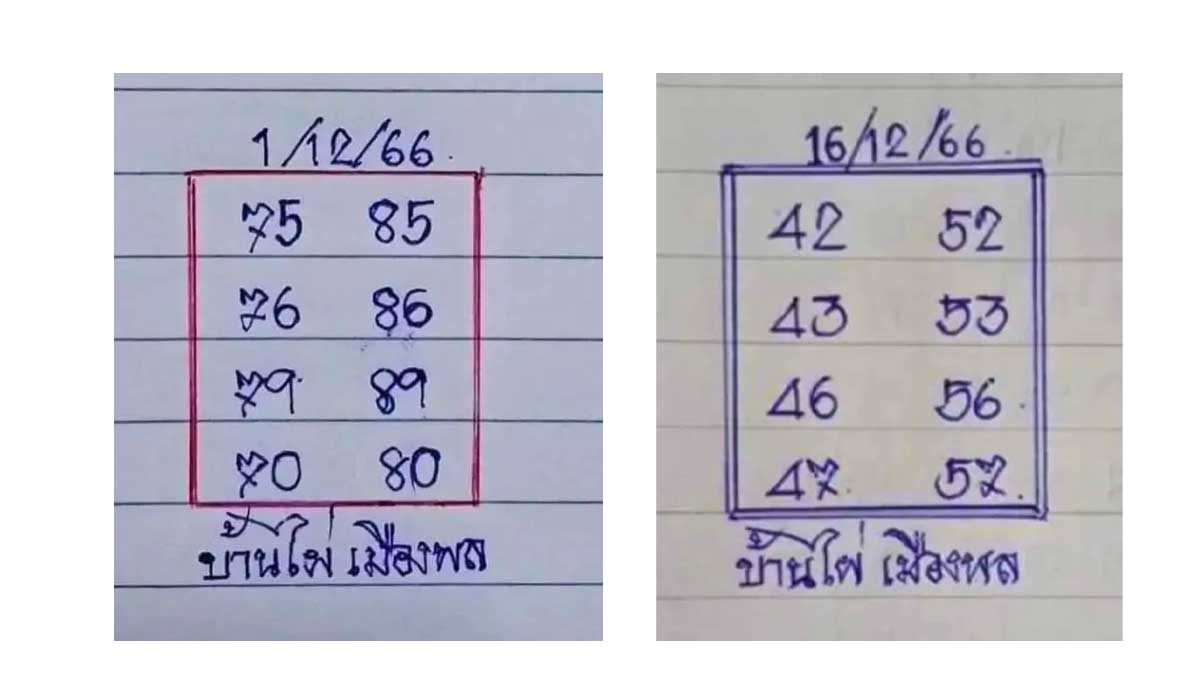 1/12/66
75 85
76 86
79 89
70 80
บ้านไผ่ เมืองพล
16/12/66
42 52
43 53
46 56
47 57
บ้านไผ่ เมืองพล